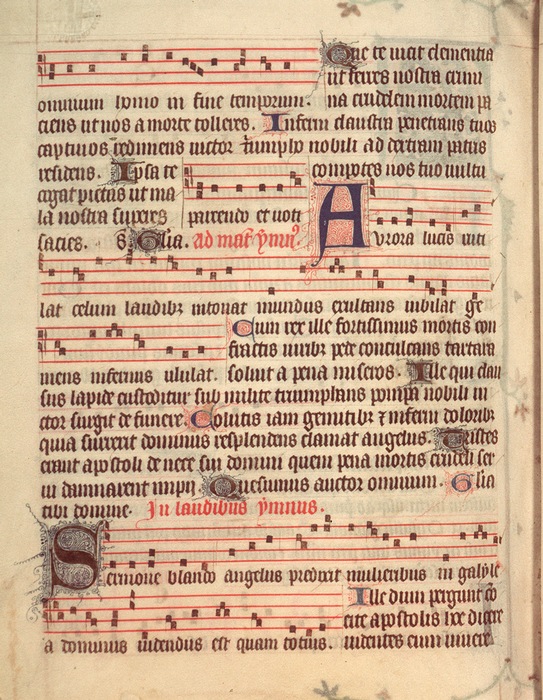 Que te vicit clementia
ut ferres nostra crimi
omnium homo in fine temporum. na crudelem mortem pa
ciens ut nos a morte tolleres. Inferni claustra penetrans tuos
captiuos redimens uictor triumpho nobili ad dextram patris
residens. Ipsa te compotes nos tuo uultu
cogat pietas ut ma
la nostra superes parcendo et uoti
sacies. Glia. ad mat ymnus Aurora lucis ruti
lat celum laudibz intonat mundus exultans iubilat ge
Cum rex ille fortissimus mortis con
fractis uiribz pede conculcans tartara
mens infernus ululat. soluit a pena miseros. Ille qui clau
sus lapide custoditur sub milite triumphans pompa nobili ui
ctor surgit de funere. Solutis iam gemitibz z inferni doloribz
quia surrexit dominus resplendens clamat angelus. Tristes
erant apostoli de nece sui domini quem pena mortis crudeli ser
ui damnarant impii. Quesumus auctor omnium. Glia
tibi domine. In laudibus ymnus.
Sermone blando angelus predixit mulieribus in galyle
Ille dum pergunt co
cite apostolis hec dicere
a dominus uidendus est quam totius. uidentes eum uiuere